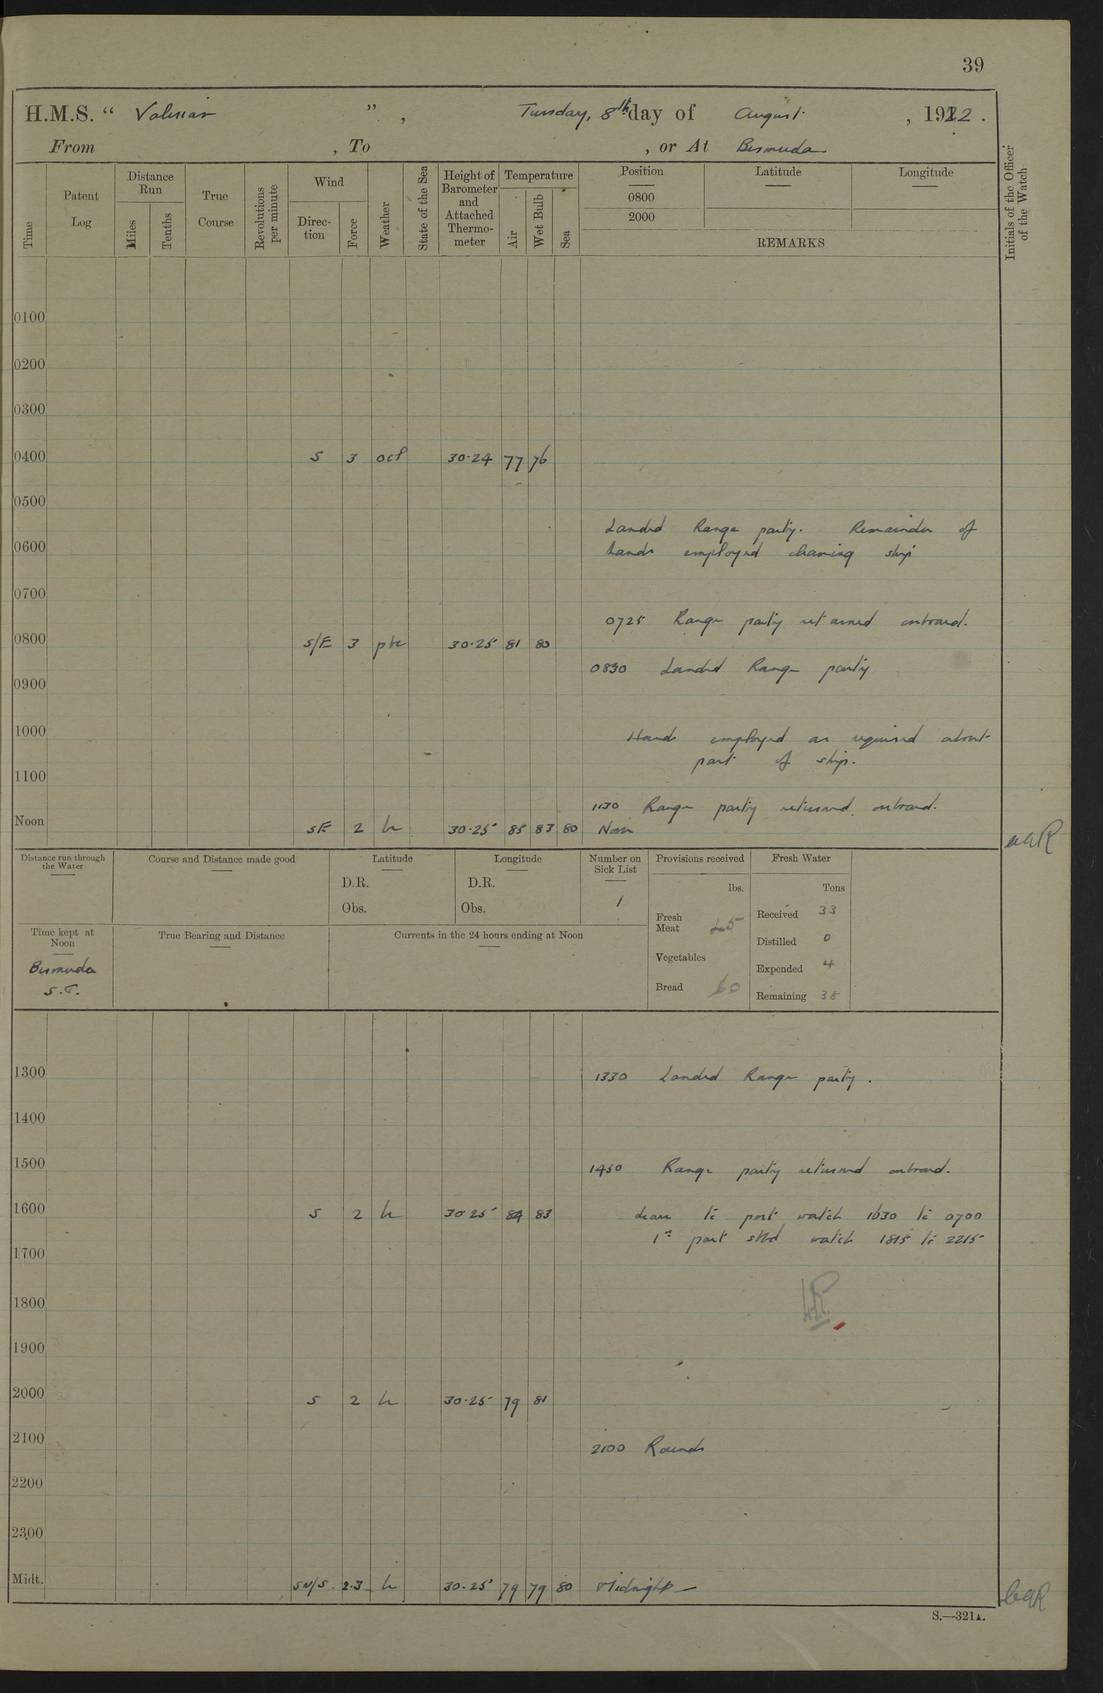 39
H.M.S. “ Valerian ” , Tuesday, 8th day of August , 1922 .
From , To , or At Bermuda
Time
Patent Log
Distance Run
Miles
Tenths
True Course
Revolutions per minute
Wind
Direction
Force
Weather
State of the Sea
Height of Barometer and Attached Thermometer
Temperature
Air
Wet Bulb
Sea
Position
0800
2000
Latitude
Longitude
REMARKS
Initials of the Officer of the Watch
0100
0200
0300
0400 S 3 30.24 77 76
0500
Landed Range party. Remainder of
0600 hands employed cleaning ship
0700
0725 Range party returned onboard.
0800 S/E 3 30.25 81 80
0830 Landed Range party
0900
1000 Hands employed as required about
part of ship.
1100
1130 Range party returned onboard.
Noon SE 2 30.25 85 83 80 Noon
Distance run through the Water
Course and Distance made good
Latitude
D.R.
Obs.
Longitude
D.R.
Obs.
Number on Sick List
1
Provisions received
lbs.
Fresh Meat 45
Vegetables
Bread 60
Fresh Water
Tons
Received 33
Distilled 0
Expended 4
Remaining 38
Time kept at Noon
Bermuda
S.T.
True Bearing and Distance
Currents in the 24 hours ending at Noon
1300 1330 Landed Range party.
1400
1500 1450 Range party returned onboard.
1600 S 2 30.25 84 83 Leave to port watch 1630 to 0700
1st part stbd watch 1815 to 2215
1700
1800
1900
2000 S 2 30.25 79 81
2100 2100 Rounds
2200
2300
Midt. SW/S. 2.3 30.25 79 79 80 Midnight
S.—321A.